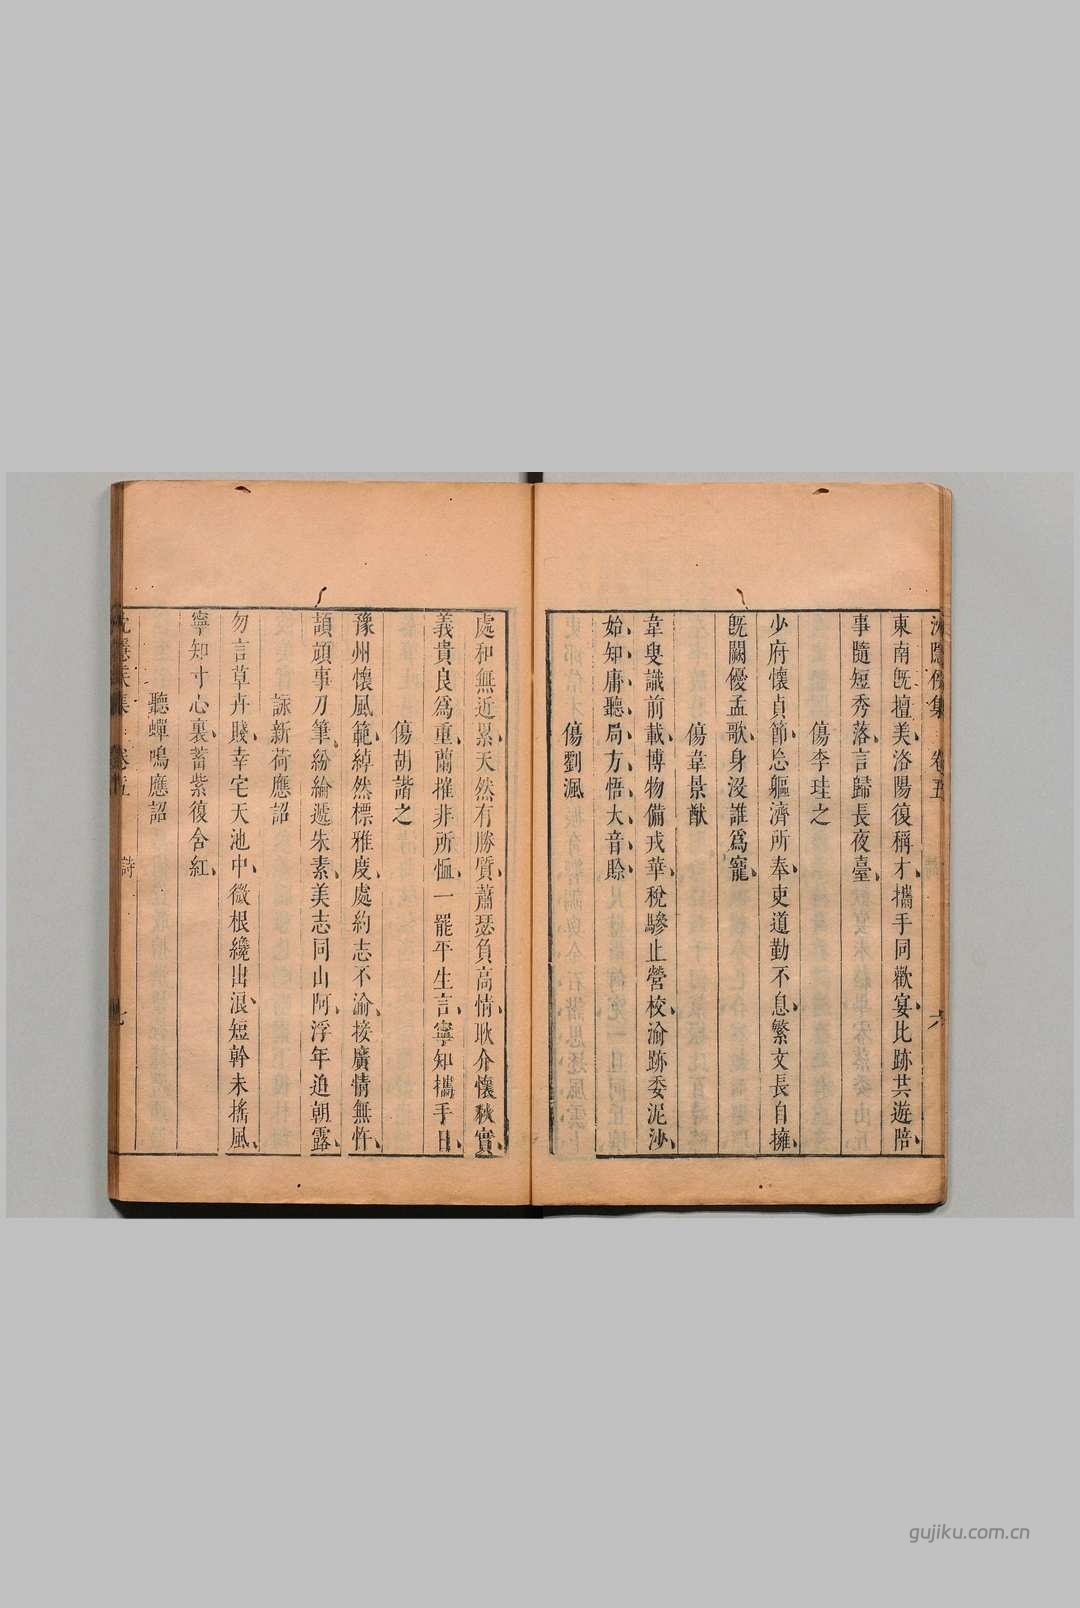 沈隱侯集 卷五 六
東南旣擅美洛陽復稱才攜手同歡宴比跡共遊陪
事隨短秀落言歸長夜臺
傷李珪之
少府懷貞節忘軀濟所奉吏道勤不息繁文長自擁
旣闕優孟歌身沒誰爲寵
傷韋景猷
韋叟識前載博物備戎華稅驂止營校淪跡委泥沙
始知庸聽局方悟大音賒
傷劉渢
處和無近累天然有勝質蕭瑟負高情耿介懷秋實
義貴良爲重蘭摧非所恤一罷平生言寧知攜手日
傷胡諧之
豫州懷風範綽然標雅度處約志不渝接廣情無忤
頡頏事刀筆紛綸遞朱素美志同山阿浮年迫朝露
詠新荷應詔
勿言草卉賤幸宅天池中微根纔出浪短幹未搖風
寧知寸心裏蓄紫復含紅
聽蟬鳴應詔
集 卷五 詩 七
gujiku.com.cn